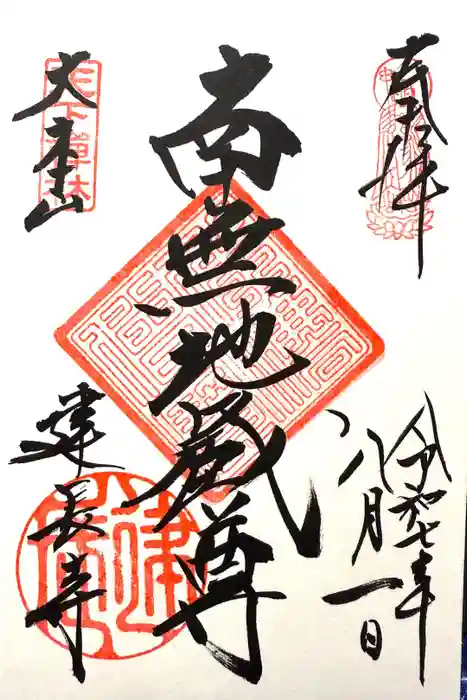 奉拝
令和七年
八月一日
南無地蔵尊
大本山
天下禅林
建長寺